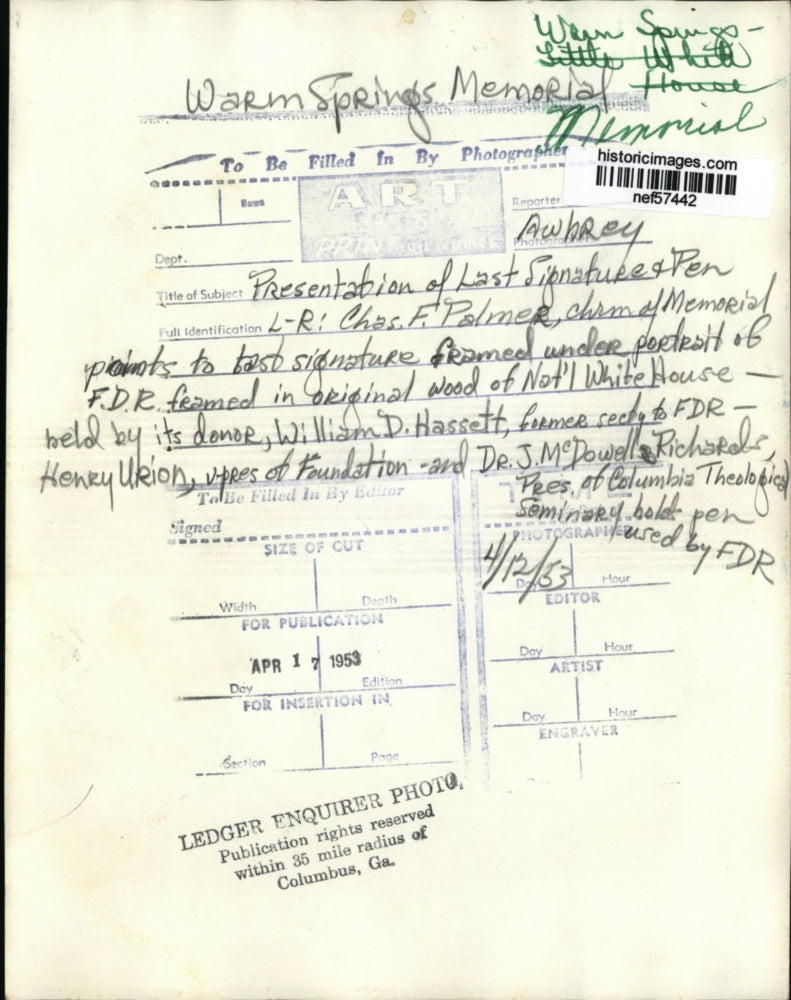 Warm Springs -
Little White
House
Memorial
Warm Springs Memorial
To Be Filled In By Photographer
historicimages.com
nef57442
News
ART
Reporter
Awbrey
Photographer
Dept.
Title of Subject Presentation of Last Signature & Pen
Full Identification L-R: Chas. F. Palmer, chrm of Memorial
points to last signature framed under portrait of
F.D.R. framed in original wood of Nat'l White House —
held by its donor, William D. Hassett, former secty to FDR —
Henry Urion, v-pres of Foundation - and Dr. J. McDowell Richards,
Pres. of Columbia Theological
Seminary holds pen
used by FDR
To Be Filled In By Editor
Signed
SIZE OF CUT
Width Depth
FOR PUBLICATION
APR 17 1953
Day Edition
FOR INSERTION IN
Section Page
TIME
PHOTOGRAPHER
4/12/53
Day Hour
EDITOR
Day Hour
ARTIST
Day Hour
ENGRAVER
LEDGER ENQUIRER PHOTO.
Publication rights reserved
within 35 mile radius of
Columbus, Ga.